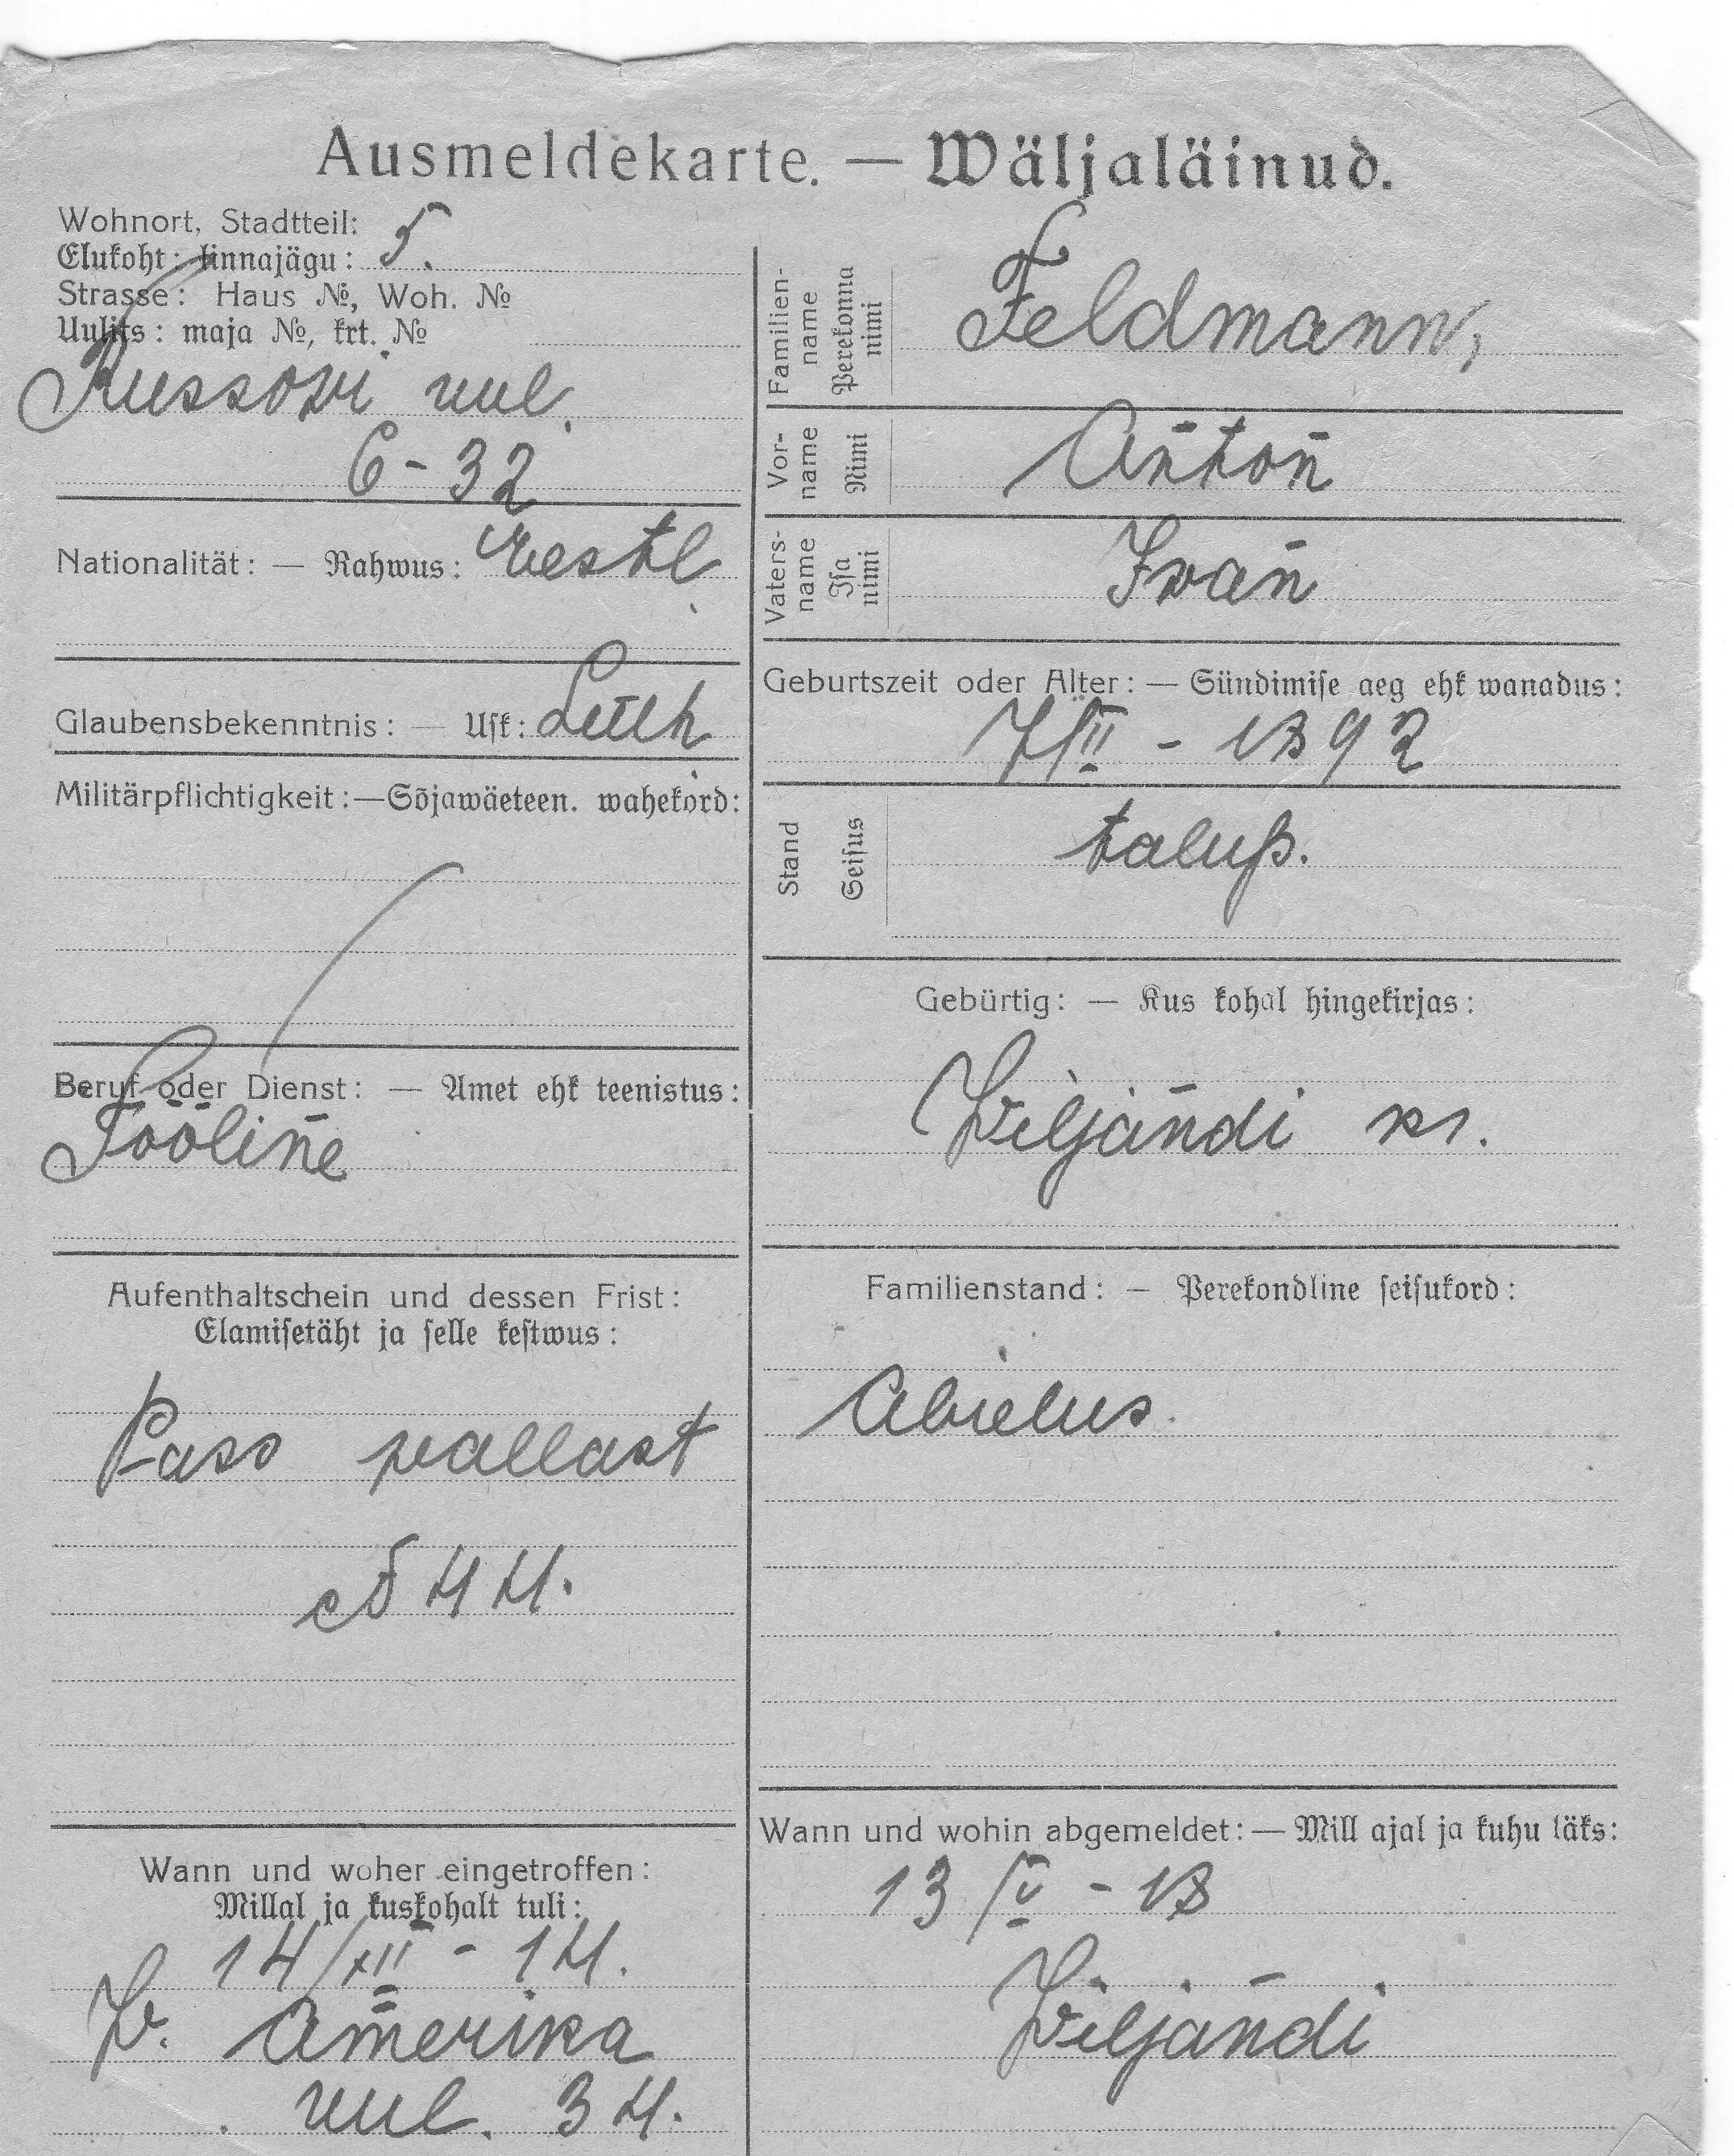 Ausmeldekarte. — Wäljaläinud.
Wohnort, Stadtteil:
Elukoht: linnajägu: 5.
Strasse: Haus №, Woh. №
Uulits: maja №, krt. №
Russowi uul.
6-32
Nationalität: — Rahwus: Eestl.
Glaubensbekenntnis: — Usk: Luth
Militärpflichtigkeit: — Sõjawäeteen. wahekord:
Beruf oder Dienst: — Amet ehk teenistus:
Tööline
Aufenthaltschein und dessen Frist:
Elamisetäht ja selle kestwus:
Pass wallast
Wann und woher eingetroffen:
Millal ja kuskohalt tuli:
14/XII - 14.
W. Amerika
uul. 34.
Familienname Perekonna nimi Feldmann,
Vorname Nimi Anton
Vatersname Isa nimi Iwan
Geburtszeit oder Alter: — Sündimise aeg ehk wanadus:
7/II - 1892
Stand Seisus talup.
Gebürtig: — Kus kohal hingekirjas:
Wiljandi kr.
Familienstand: — Perekondline seisukord:
Abielus.
Wann und wohin abgemeldet: — Mill ajal ja kuhu läks:
13/V - 18
Wiljandi